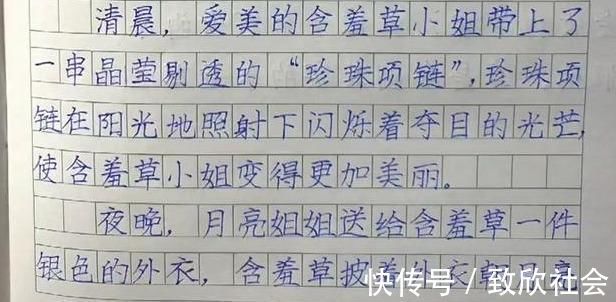 清晨，爱美的含羞草小姐带上了
一串晶莹剔透的“珍珠项链”，珍珠项
链在阳光地照射下闪烁着夺目的光芒，
使含羞草小姐变得更加美丽。
夜晚，月亮姐姐送给含羞草一件
银色的外衣，含羞草披着外衣朝月亮
快传号／致欣社会